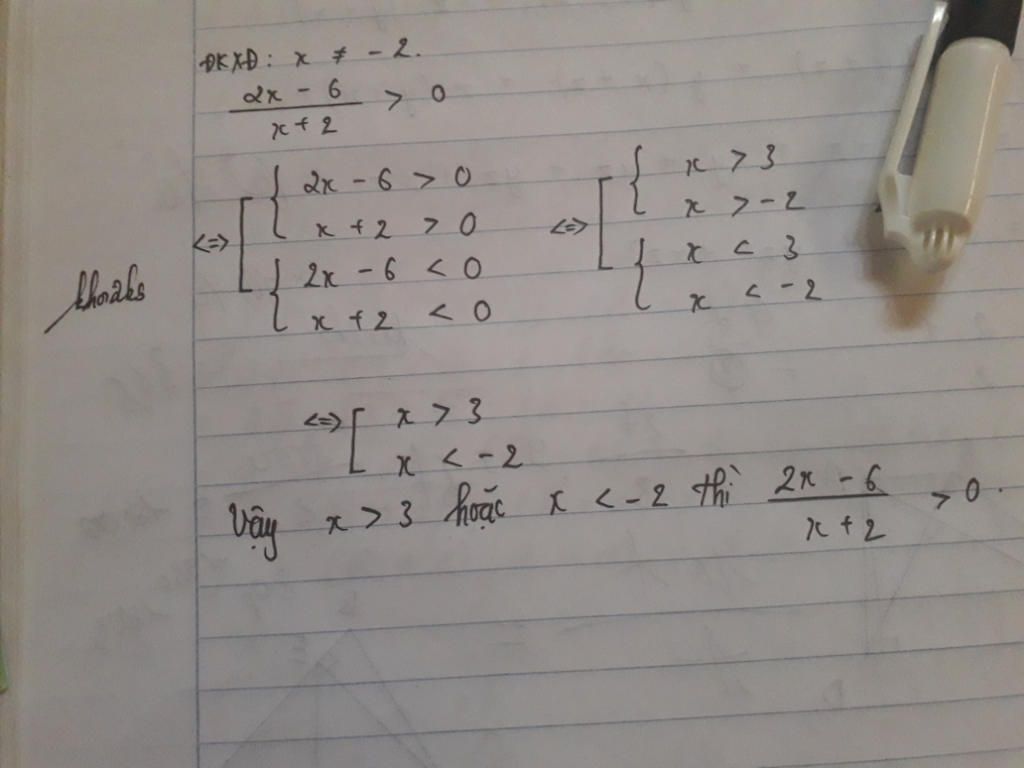 ĐKXĐ: x ≠ -2.
2x - 6 / x + 2 > 0
<=> [ { 2x - 6 > 0 <=> [ { x > 3
x + 2 > 0 x > -2
{ 2x - 6 < 0 { x < 3
x + 2 < 0 x < -2
khoaks
<=> [ x > 3
x < -2
Vậy x > 3 hoặc x < -2 thì 2x - 6 / x + 2 > 0.